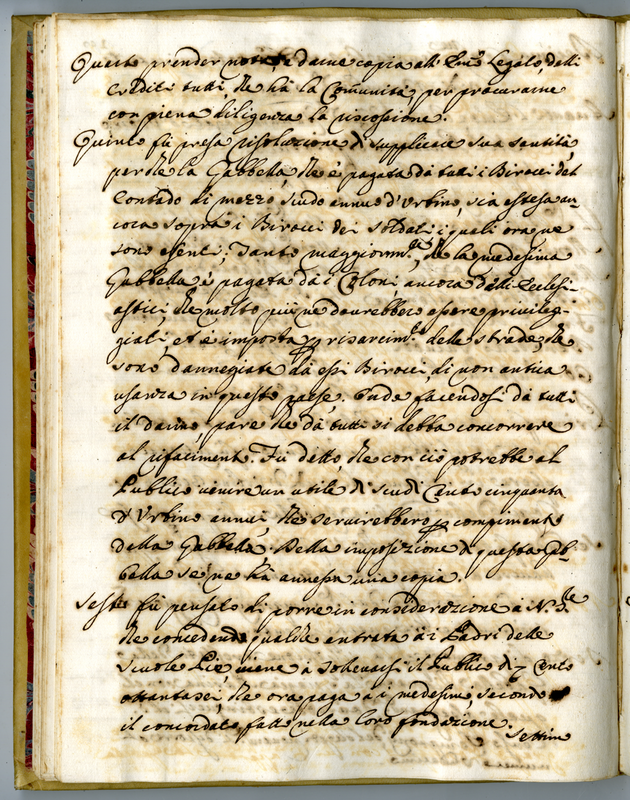 Quarto prender nota, e darne copia all' Em.o Legato, delli
crediti tutti, che hà la Comunità, per procurarne
con piena diligenza la riscossione.
Quinto fù presa risoluzione di supplicare sua santità,
perche la Gabbella, che è pagata dà tutti i Birocci del
Contado di mezzo scudo annuo d'Urbino, sia estesa an
cora sopra i Birocci dei soldati, i quali ora ne
sono esenti; Tanto maggiorm.te, che la medesima
Gabbella è pagata dà i Coloni ancora delli Ecclesi-
astici, che molto più ne dourebbero essere privileg-
giati, et è imposta p risarcim.to delle strade, che
sono dannegiate dà essi Birocci, di non antica
usanza in questo paese. Onde facendosi dà tutti
il danno, pare che dà tutti si debba concorrere
al rifacimento. Fù detto, che con ciò potrebbe al
Publico venire un utile di scudi Cento cinquanta
d'Urbino annui, che servirebbero p compimento
della Gabbella. Della imposizione di questa Gab-
bella se ne hà annessa una copia.
Sesto fù pensato di porre in considerazione à N. S.re
che concedendo qualche entrata à i Padri delle
Scuole Pie, viene à sollevarsi il Publico di 7 Cento
ottantasei, che ora paga à i medesimi, secondo
il concordato fatto nella loro fondazione.
Settimo